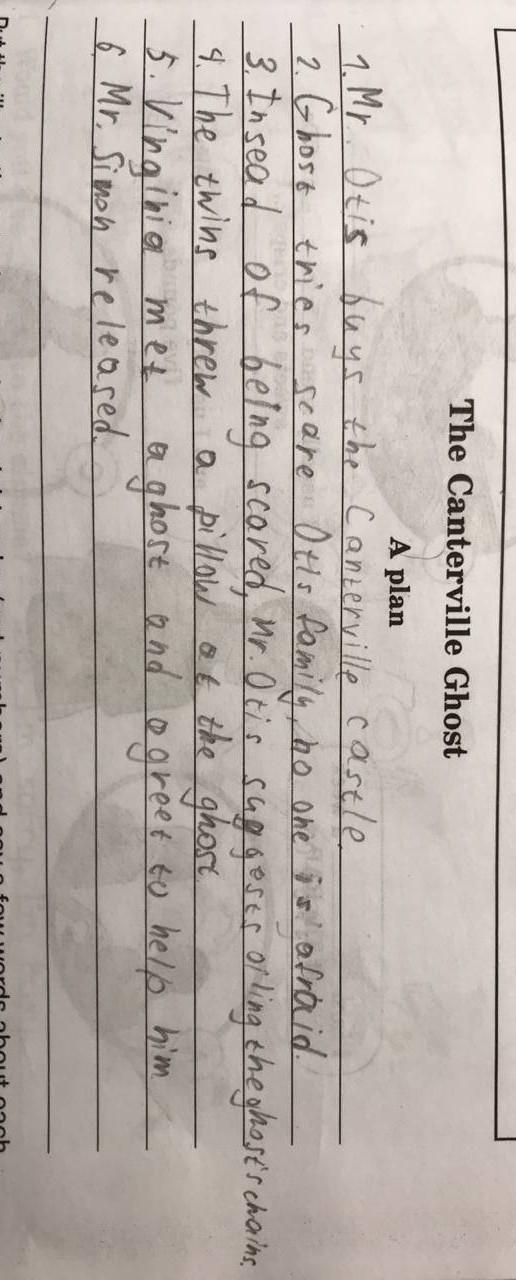 The Canterville Ghost
A plan
1. Mr. Otis buys the Canterville castle.
2. Ghost tries scare Otis family, no one is afraid.
3. Insead of being scared, Mr. Otis suggests oiling the ghost's chains.
4. The twins threw a pillow at the ghost.
5. Vinginia met a ghost and agreet to help him.
6. Mr. Simon released.